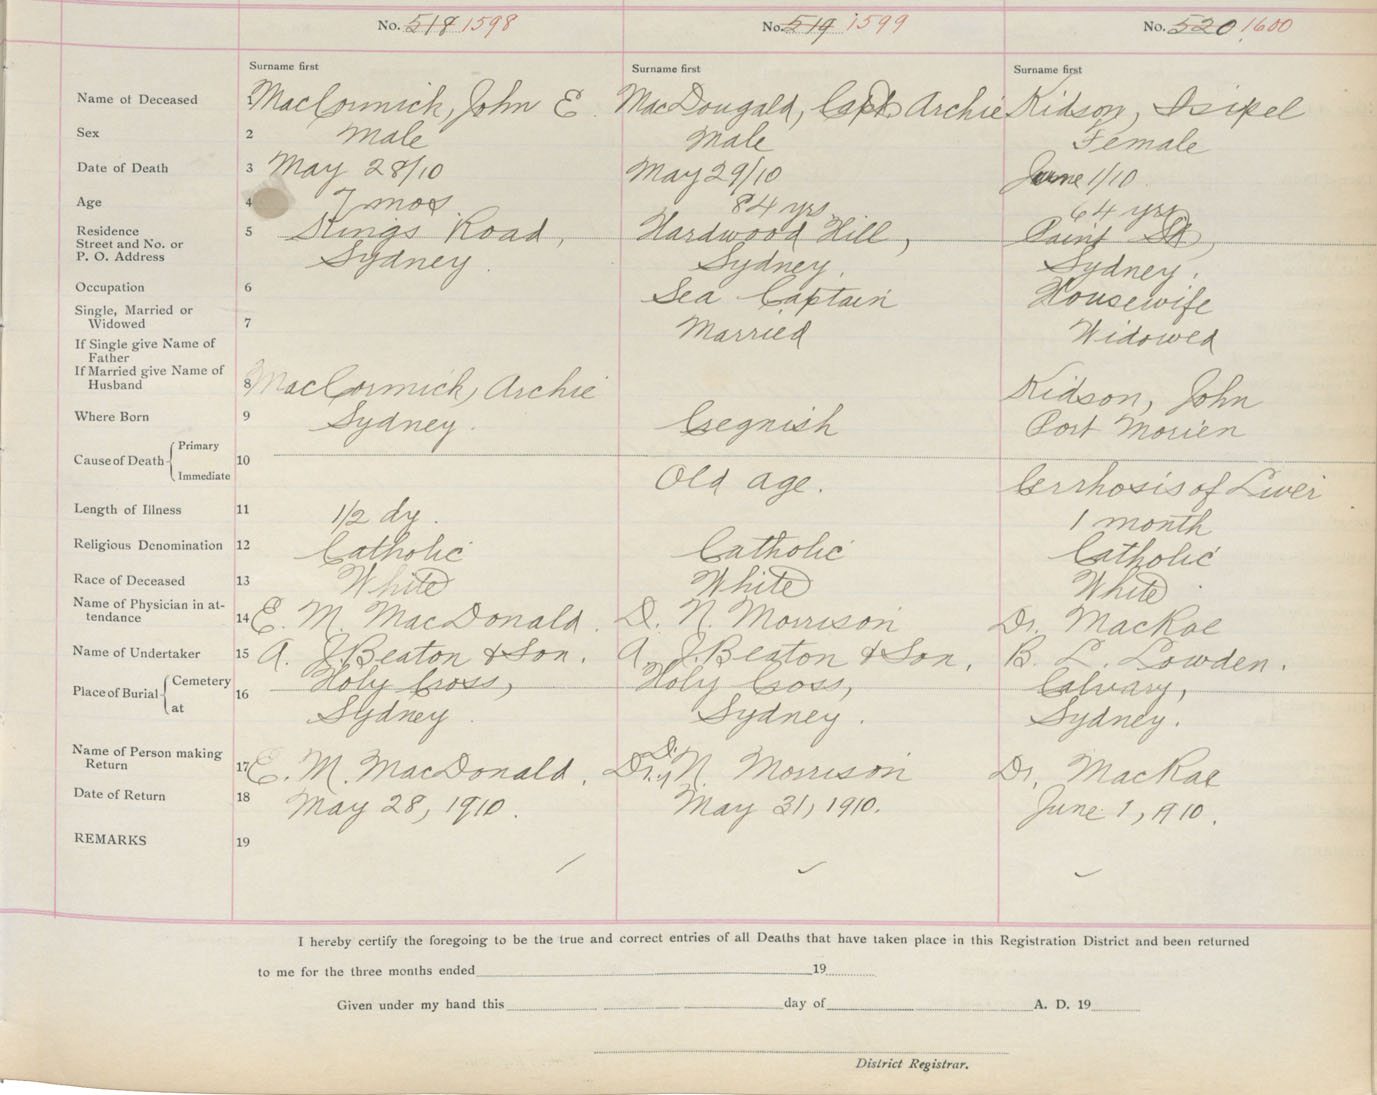 No. 518 1598 No. 519 1599 No. 520 1600
Surname first Surname first Surname first
Name of Deceased 1 MacCormick, John E. MacDougald, Capt. Archie Kidson, Isipel
Sex 2 Male Male Female
Date of Death 3 May 28/10 May 29/10 June 1/10
Age 4 7 mos 84 yrs 64 yrs
Residence
Street and No. or
P. O. Address
5 Kings Road, Hardwood Hill,
Sydney. Sydney. Sydney.
Occupation 6 Sea Captain Housewife
Single, Married or
Widowed 7 Married Widowed
If Single give Name of
Father
If Married give Name of
Husband
8 MacCormick, Archie Kidson, John
Where Born 9 Sydney. Cregnish Port Morien
Cause of Death Primary
Immediate
10 Old age. Cirrhosis of Liver
Length of Illness 11 1/2 dy. 1 month
Religious Denomination 12 Catholic Catholic Catholic
Race of Deceased 13 White White White
Name of Physician in at-
tendance 14 E. M. MacDonald. D. N. Morrison Dr. MacRae
Name of Undertaker 15 A. J. Beaton & Son. A. J. Beaton & Son. B. L. Lowden.
Place of Burial Cemetery
at
16 Holy Cross, Holy Cross, Calvary,
Sydney. Sydney. Sydney.
Name of Person making
Return 17 E. M. MacDonald. Dr. D. N. Morrison Dr. MacRae
Date of Return 18 May 28, 1910. May 31, 1910. June 1, 1910.
REMARKS 19
I hereby certify the foregoing to be the true and correct entries of all Deaths that have taken place in this Registration District and been returned
to me for the three months ended 19
Given under my hand this day of A. D. 19
District Registrar.